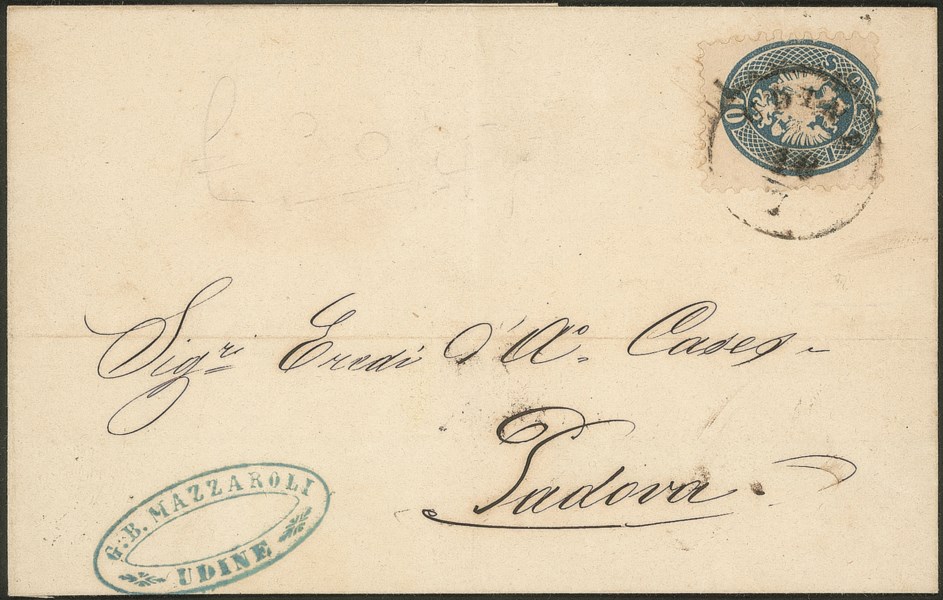 10 SOLDI
UDINE
Sigri Eredi d'Ao. Cases
Padova.
G. B. MAZZAROLI
UDINE